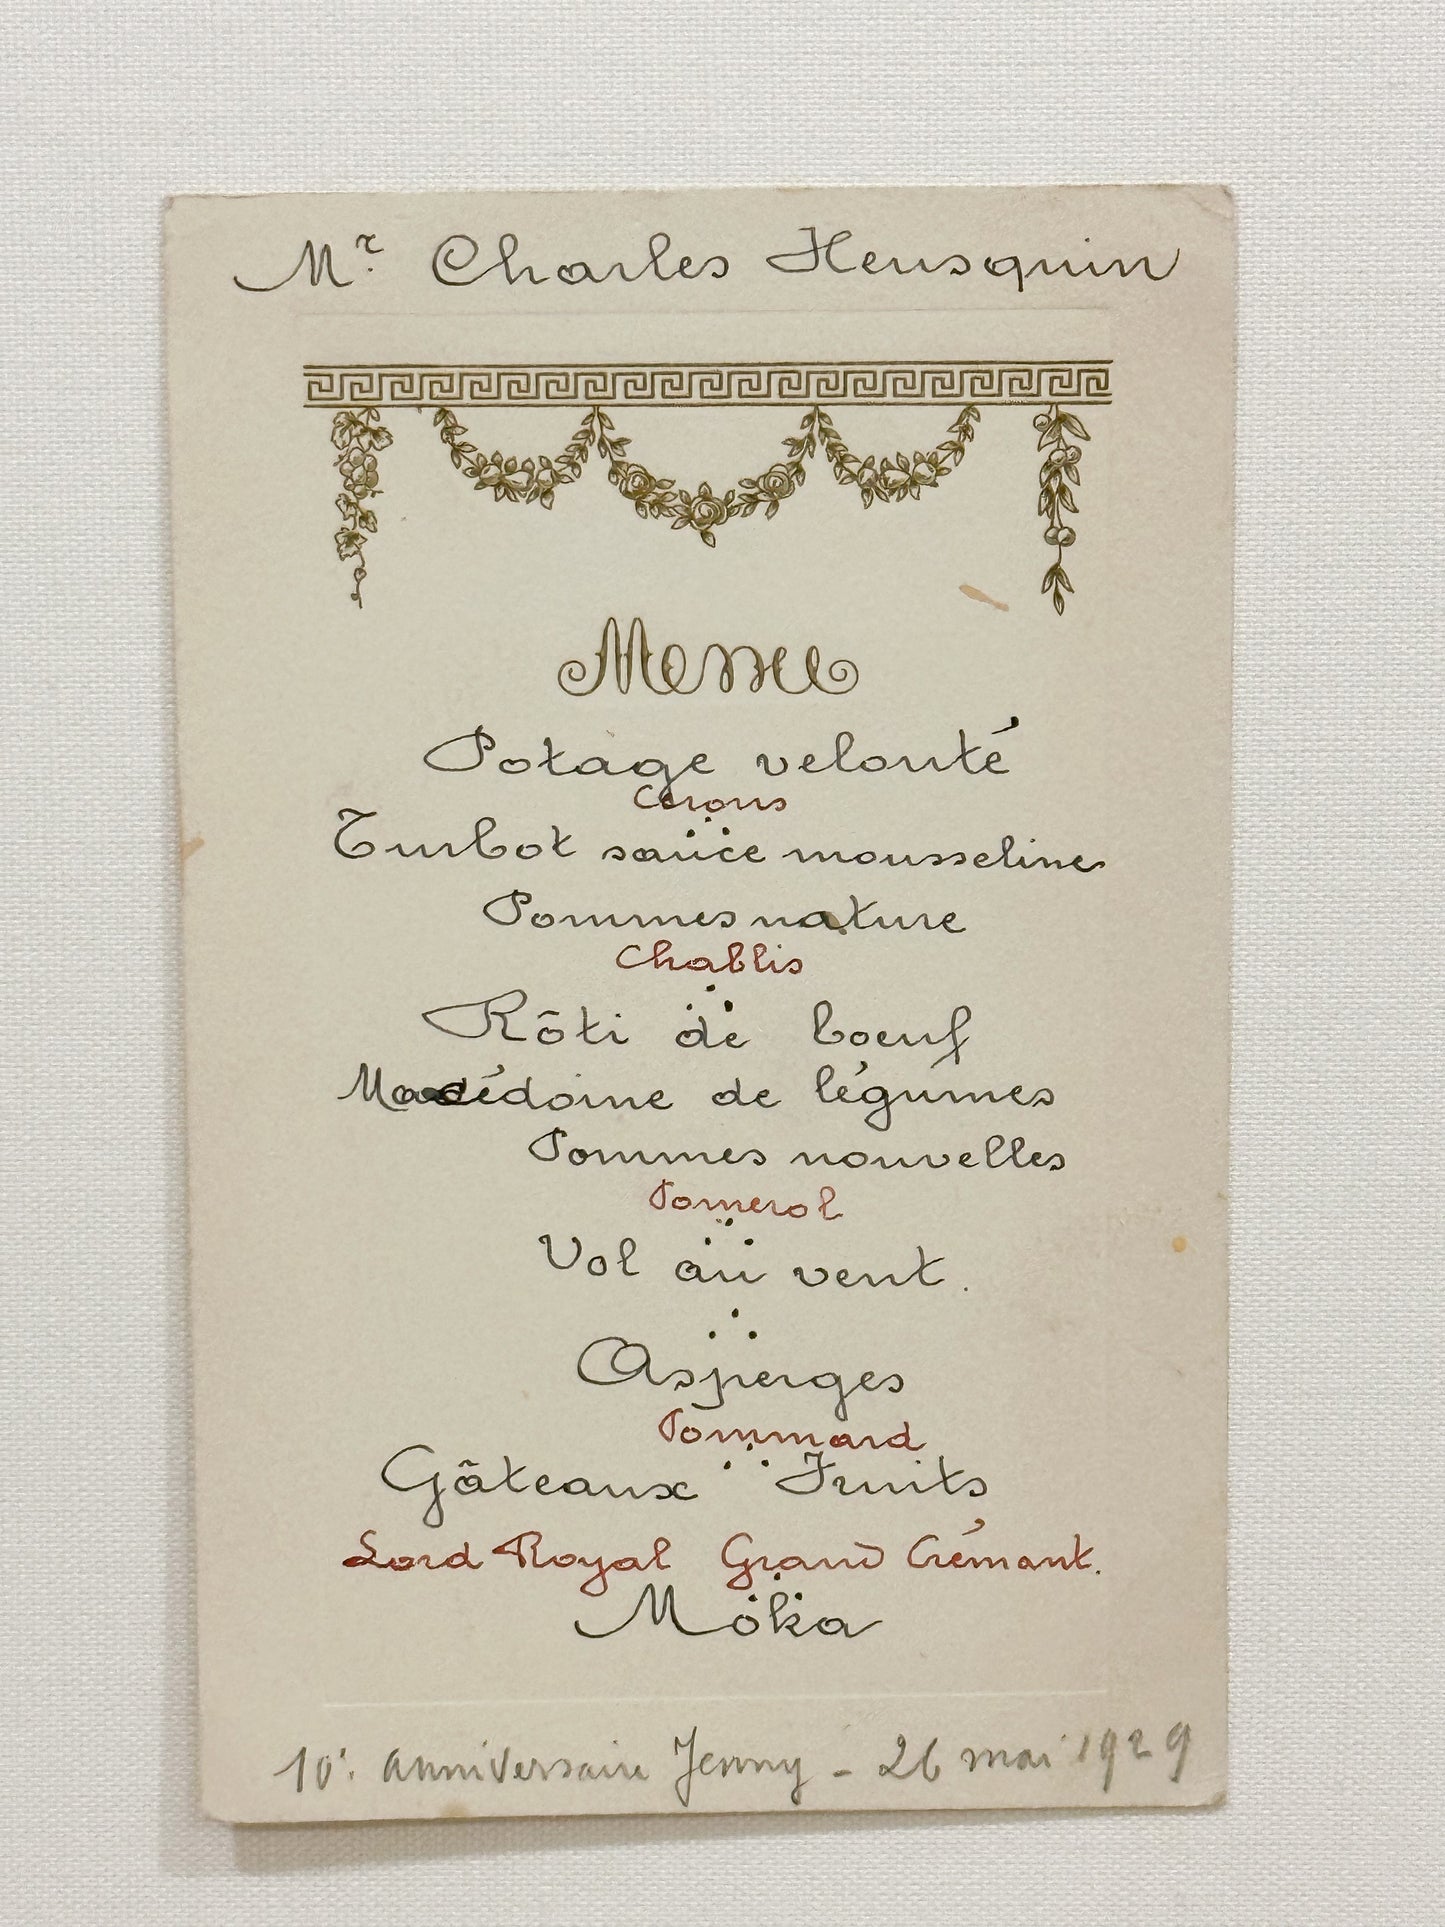 Mr. Charles Heusquin
Menu
Potage velouté
Cérons
Turbot sauce mousseline
Pommes nature
Chablis
Rôti de boeuf
Macédoine de légumes
Pommes nouvelles
Pomerol
Vol au vent.
Asperges
Pommard
Gâteaux Fruits
Lord Royal Grand Crémant.
Moka
10e. anniversaire Jenny - 26 mai 1929